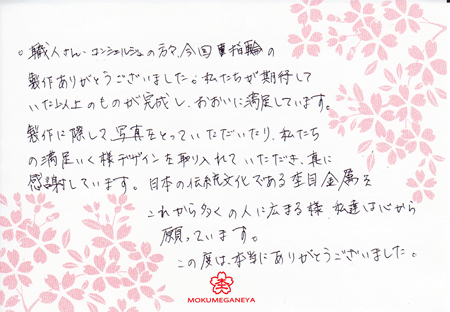 職人さん・コンシェルジュの方々、今回 指輪の
製作ありがとうございました。私たちが期待して
いた以上のものが完成し、おおいに満足しています。
製作に際して、写真をとっていただいたり、私たち
の満足いく様デザインを取り入れていただき、真に
感謝しています。日本の伝統文化である杢目金属を
これから多くの人に広まる様、私達は心から
願っています。
この度は、本当にありがとうございました。
MOKUMEGANEYA